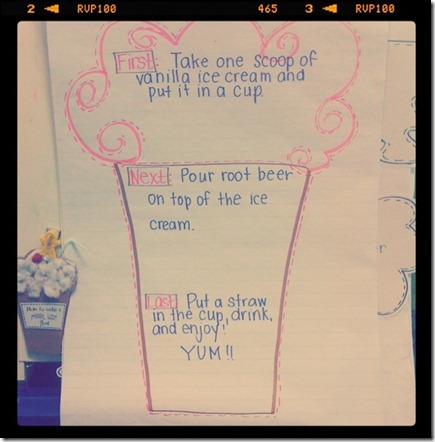 2 RVP100 465 3 RVP100
First: Take one scoop of
vanilla ice cream and
put it in a cup.
Next: Pour root beer
on top of the ice
cream.
Last: Put a straw
in the cup, drink,
and enjoy!
YUM!!
How to make a